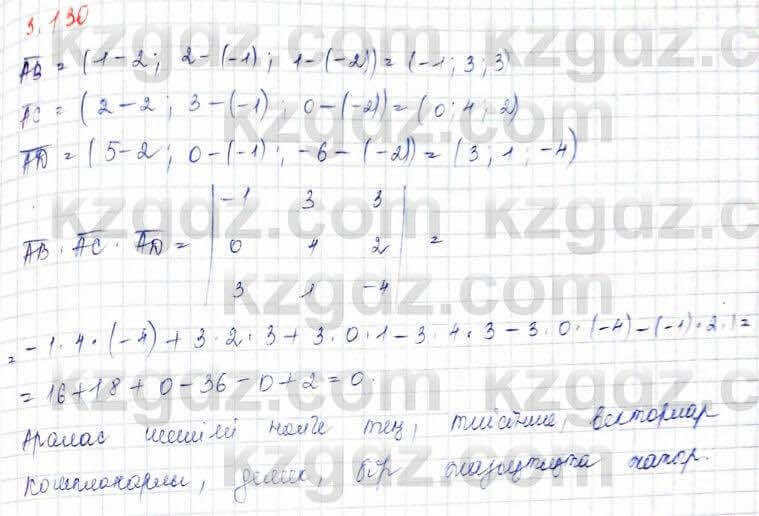 3.130
AB = (1-2; 2-(-1); 1-(-2)) = (-1; 3; 3)
AC = (2-2; 3-(-1); 0-(-2)) = (0; 4; 2)
AD = (5-2; 0-(-1); -6-(-2)) = (3; 1; -4)
-1 3 3
AB · AC · AD = | 0 4 2 | =
3 1 -4
= -1·4·(-4) + 3·2·3 + 3·0·1 - 3·4·3 - 3·0·(-4) - (-1)·2·1 =
= 16 + 18 + 0 - 36 - 0 + 2 = 0.
Аралас нөлге тең, тиісінше, векторлар
компланарлы, демек, бір жазықтықта жатыр.
kzgdz.com